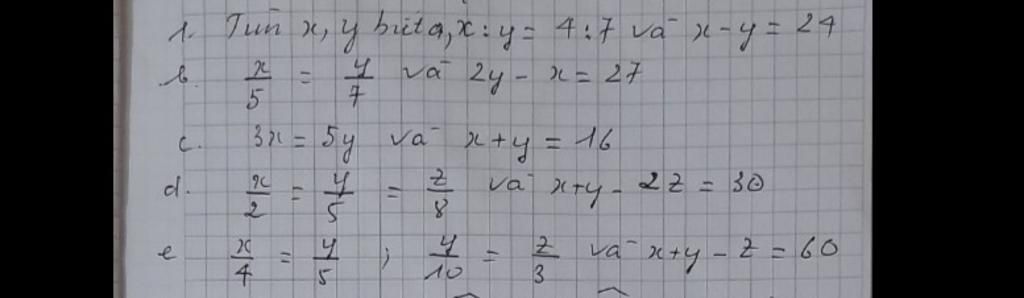 1. Tìm x, y biết a, x : y = 4 : 7 và x - y = 24
b. x/5 = y/7 và 2y - x = 27
c. 3x = 5y và x + y = 16
d. x/2 = y/5 = z/8 và x + y - 2z = 30
e x/4 = y/5 ; y/10 = z/3 và x + y - z = 60